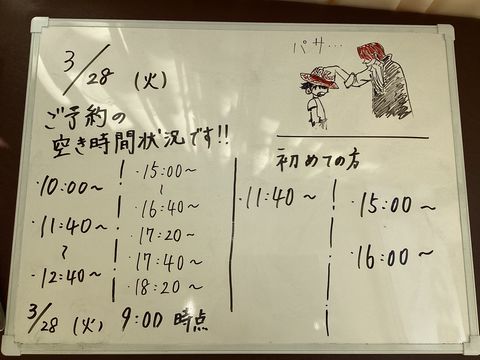 3/28 (火)
パサ…
ご予約の
空き時間状況です!!
・10:00~
・11:40~
~
・12:40~
・15:00~
~
・16:40~
・17:20~
・17:40~
・18:20~
初めての方
・11:40~
・15:00~
・16:00~
3/28 (火) 9:00 時点